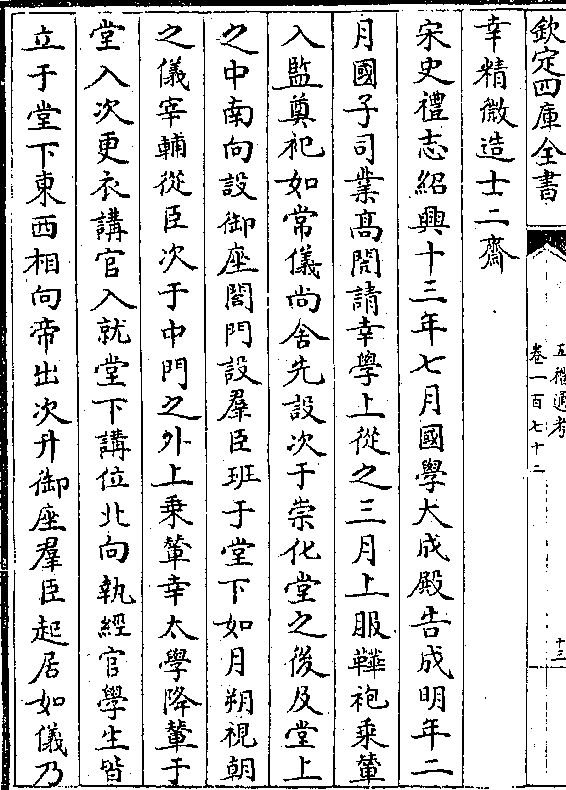 欽定四庫全書
五禮通考
卷一百七十二
十三
幸精微造士二齋
宋史禮志紹興十三年七月國學大成殿告成明年二
月國子司業髙閌請幸學上從之三月上服鞾袍乘輦
入監奠祀如常儀尚舍先設次于崇化堂之後及堂上
之中南向設御座閤門設羣臣班于堂下如月朔視朝
之儀宰輔從臣次于中門之外上乘輦幸太學降輦于
堂入次更衣講官入就堂下講位北向執經官學生皆
立于堂下東西相向帝出次升御座羣臣起居如儀乃